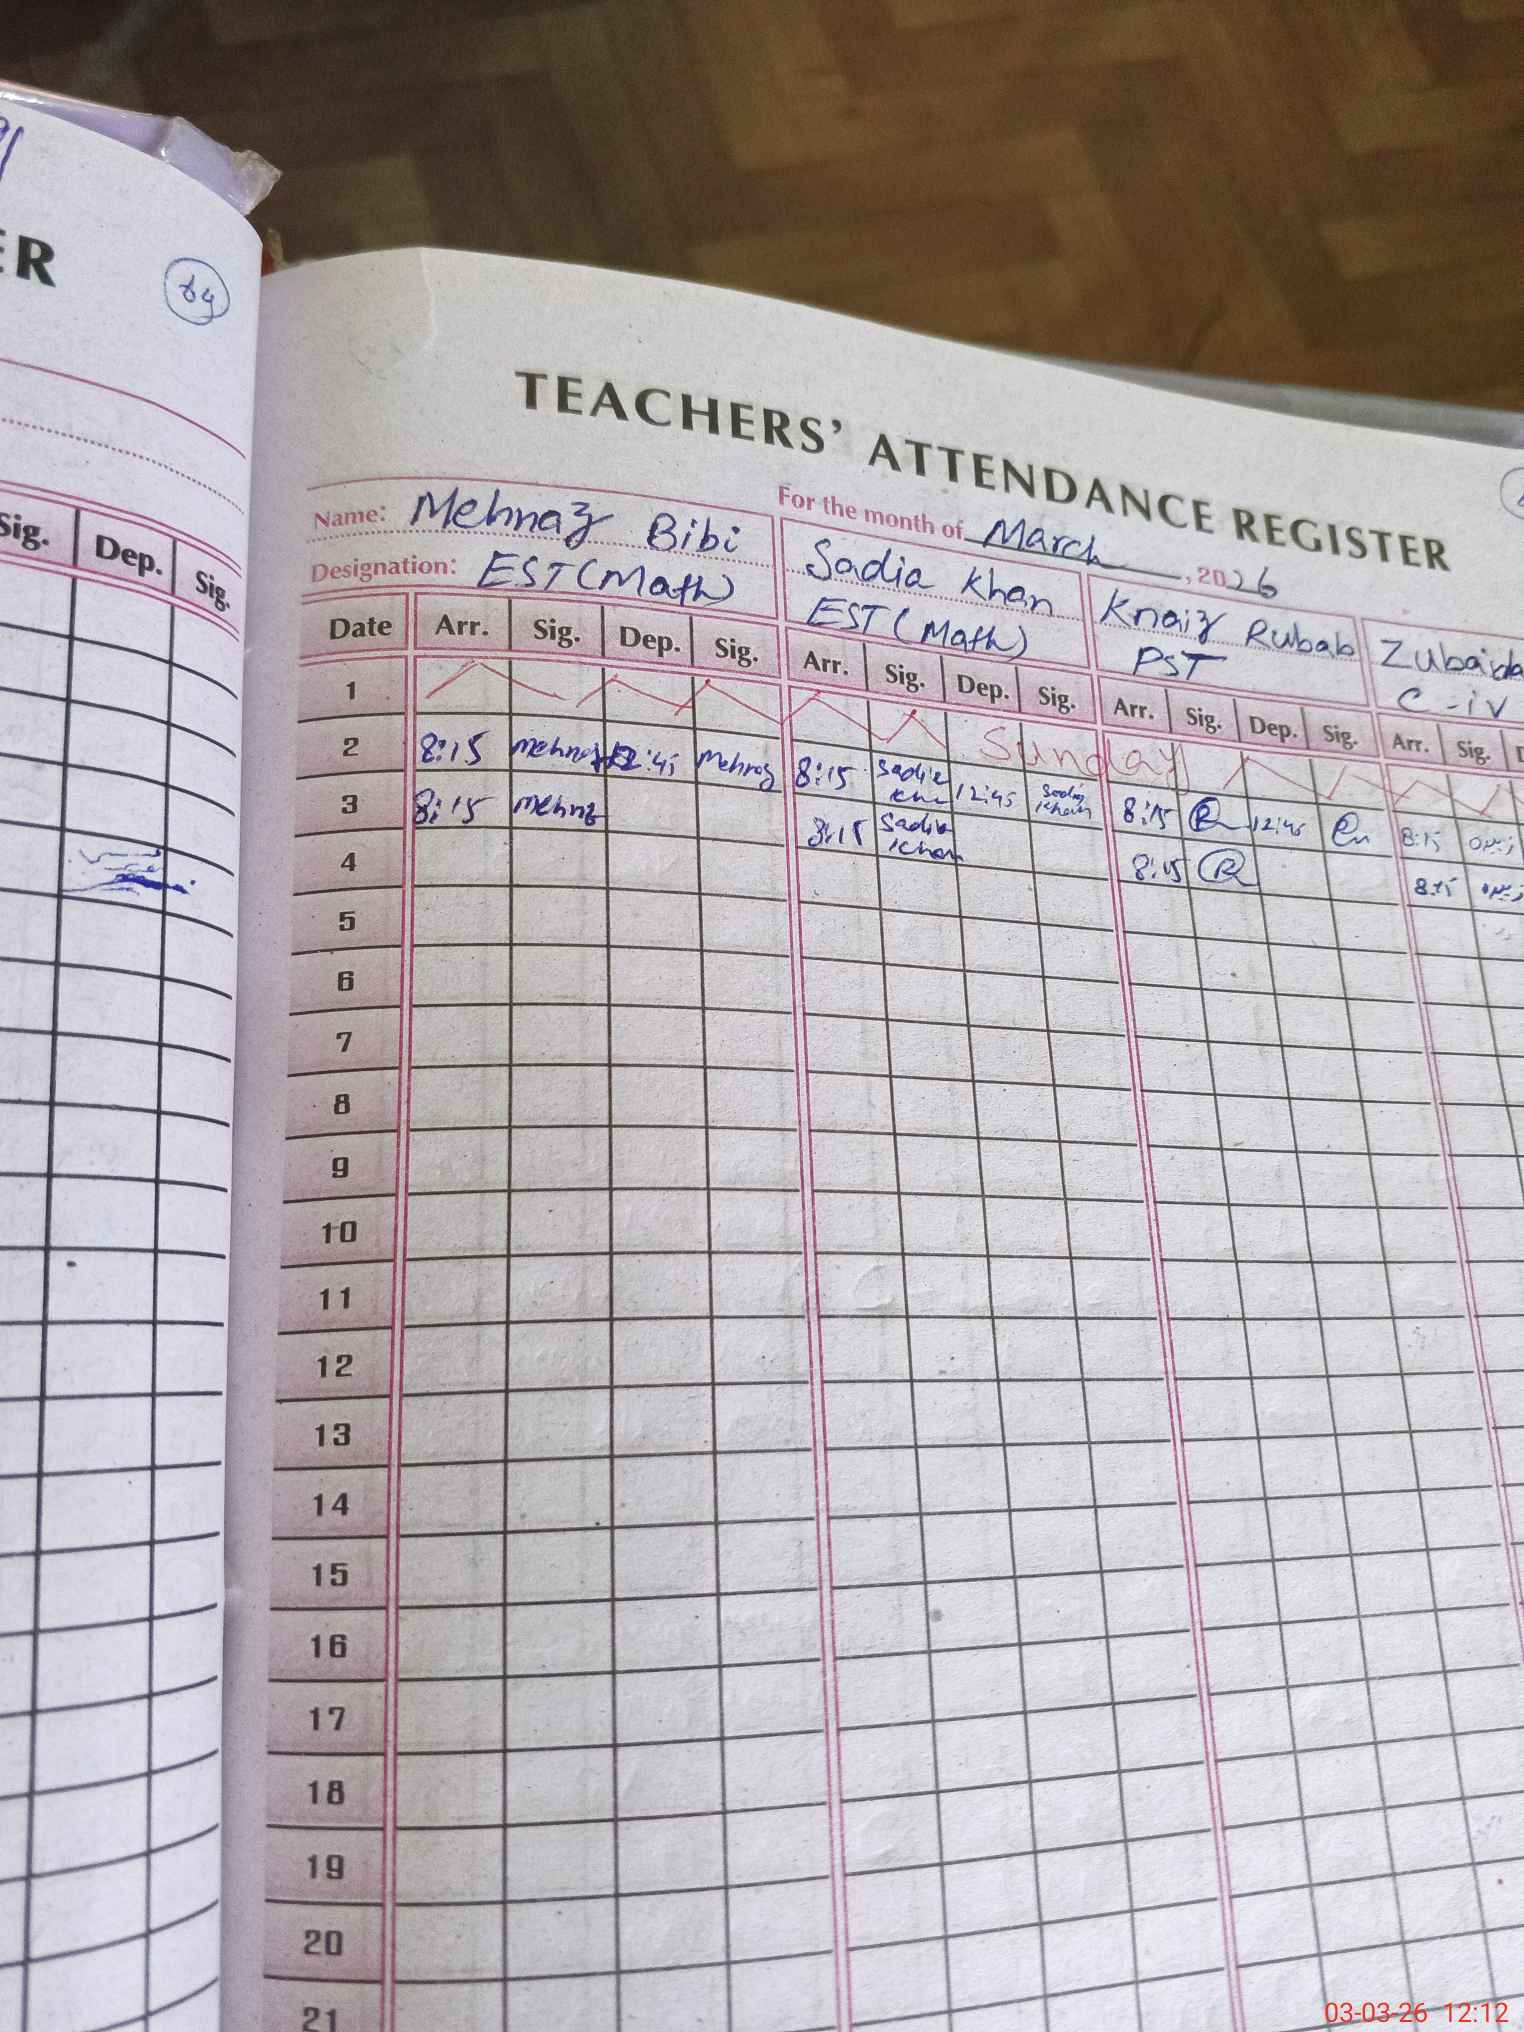 ER
TEACHERS' ATTENDANCE REGISTER
For the month of March, 2026
Name: Mehnaz Bibi
Designation: EST (Math)
Sadia Khan
EST (Math)
Knaiz Rubab
PST
Zubaida
C-iv
Sig. Dep. Sig.
Date Arr. Sig. Dep. Sig. Arr. Sig. Dep. Sig. Arr. Sig. Dep. Sig. Arr. Sig. D
1 Sunday
2 8:15 Mehnaz 12:45 Mehnaz 8:15 Sadia Khan 12:45 Sadia Khan 8:15 12:45 8:15
3 8:15 Mehnaz 8:15 Sadia Khan 8:15 8:15
4
5
6
7
8
9
10
11
12
13
14
15
16
17
18
19
20
21
03-03-26 12:12